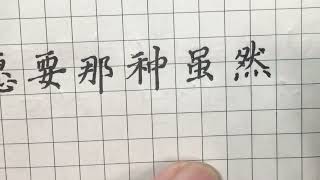 要那神虽然